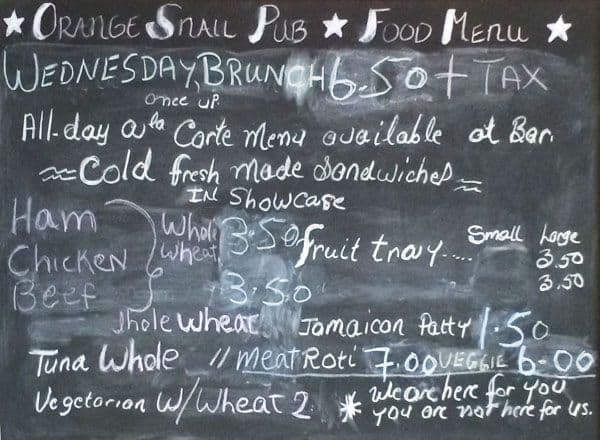 ★ ORANGE SNAIL PUB ★ FOOD MENU ★
WEDNESDAY, BRUNCH 6.50 + TAX
once up
All-day a la Carte Menu available at Bar.
≈ Cold fresh made Sandwiches ≈
IN Showcase
Ham Whole Wheat 3.50 Fruit tray..... Small Large
Chicken 3.50
Beef 3.50 3.50
hole Wheat Jamaican Patty 1.50
Tuna Whole // Meat Roti 7.00 VEGGIE 6.00
Vegetarian W/Wheat 2. * We are here for you
you are not here for us.